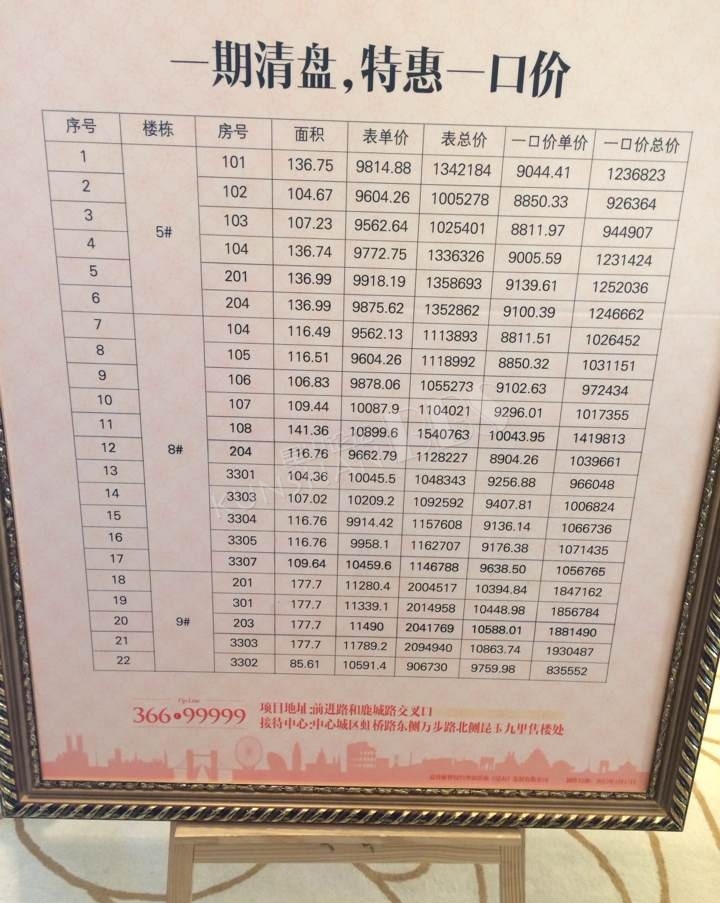 一期清盘,特惠一口价
序号 楼栋 房号 面积 表单价 表总价 一口价单价 一口价总价
1 5# 101 136.75 9814.88 1342184 9044.41 1236823
2 102 104.67 9604.26 1005278 8850.33 926364
3 103 107.23 9562.64 1025401 8811.97 944907
4 104 136.74 9772.75 1336326 9005.59 1231424
5 201 136.99 9918.19 1358693 9139.61 1252036
6 204 136.99 9875.62 1352862 9100.39 1246662
7 8# 104 116.49 9562.13 1113893 8811.51 1026452
8 105 116.51 9604.26 1118992 8850.32 1031151
9 106 106.83 9878.06 1055273 9102.63 972434
10 107 109.44 10087.9 1104021 9296.01 1017355
11 108 141.36 10899.6 1540763 10043.95 1419813
12 204 116.76 9662.79 1128227 8904.26 1039661
13 3301 104.36 10045.5 1048343 9256.88 966048
14 3303 107.02 10209.2 1092592 9407.81 1006824
15 3304 116.76 9914.42 1157608 9136.14 1066736
16 3305 116.76 9958.1 1162707 9176.38 1071435
17 3307 109.64 10459.6 1146788 9638.50 1056765
18 9# 201 177.7 11280.4 2004517 10394.84 1847162
19 301 177.7 11339.1 2014958 10448.98 1856784
20 203 177.7 11490 2041769 10588.01 1881490
21 3303 177.7 11789.2 2094940 10863.74 1930487
22 3302 85.61 10591.4 906730 9759.98 835552
366 99999
项目地址:前进路和鹿城路交叉口
接待中心:中心城区虹桥路东侧万步路北侧昆玉九里售楼处